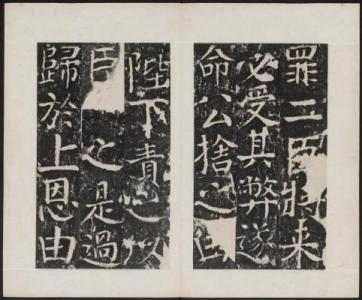 罪二將來
必受其弊遂
命公捨之
陛下責之以
臣之是過
歸於上恩由